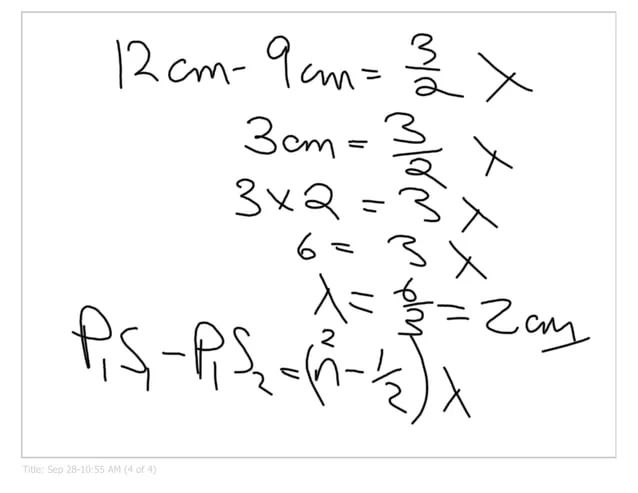 12cm - 9cm = 3/2 λ
3cm = 3/2 λ
3 × 2 = 3 λ
6 = 3 λ
λ = 6/3 = 2cm
P₁S₁ - P₁S₂ = (n² - 1/2) λ
Title: Sep 28-10:55 AM (4 of 4)